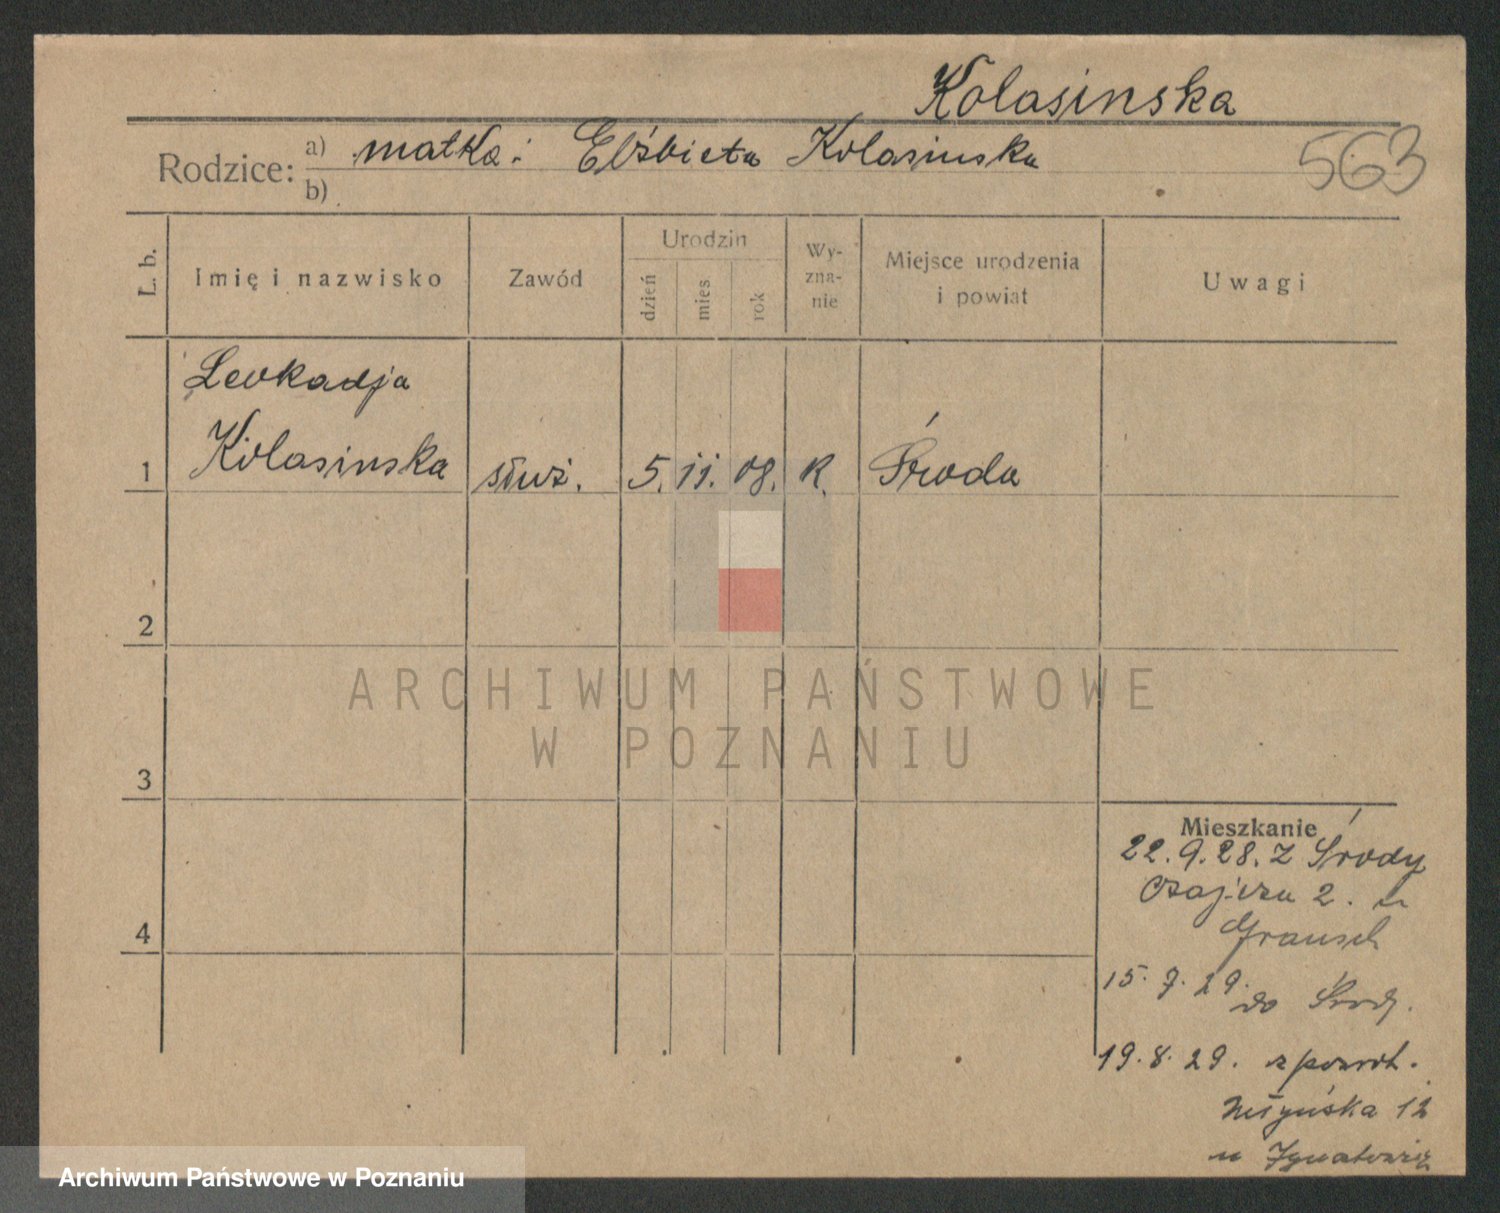 Kolasinska
Rodzice: a) matka: Elżbieta Kolasinska
b)
563
L. b.
Imię i nazwisko
Zawód
Urodzin
dzień
mies
rok
Wy-
zna-
nie
Miejsce urodzenia
i powiat
Uwagi
Leokadja
1 Kolasinska służ. 5. 11. 08. K. Środa
2
3
4
ARCHIWUM PAŃSTWOWE
W POZNANIU
Mieszkanie
22.9.28. z Środy
2. u
Grausch
15. 7. 29.
do Środy.
19. 8. 29. z powrot.
12
u
Archiwum Państwowe w Poznaniu